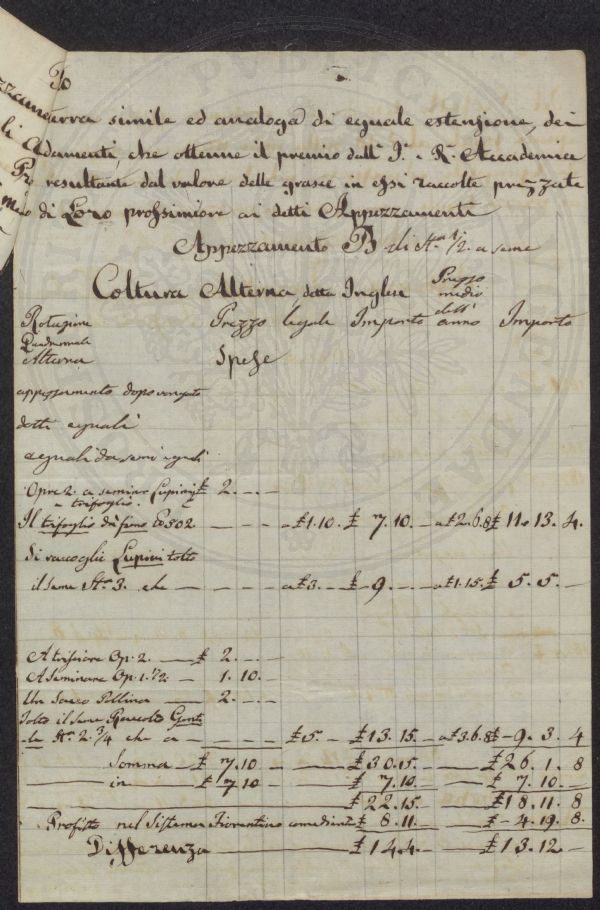 Terra simile ed analoga di eguale estenzione, dei
Adamenti, che ottenne il premio dall' I. e R. Accademia
resultante dal valore delle grasce in essi raccolte prezzate
di Loro prossimiore ai detti Appezzamenti
Appezzamento B di St. 1/2. a seme
Coltura Alterna detta Inglese
Rotazione Prezzo legale Importo Prezzo medio dell' anno Importo
Quadriennale
Alterna Spese
appezzamento dopo
dotti eguali
eguali da semi eguali
Opre 2. a semino Lupini £ 2. - -
e trifoglio.
Il trifoglio diè fieno 502 - - - a £ 1.10. £ 7.10. - a £ 2.6.8 £ 11. 13. 4.
Si raccoglie Lupini tolto
il seme St. 3. che - - - - a £ 3. - £ - 9. - - a £ 1.15. £ 5. 5. -
Op. 2. - £ 2. - -
A seminare Op. 1. 1/2 - 1. 10. -
Un Sacco Pollina - 2. - -
Tolto il seme Raccolto
St. 2. 3/4 che a - - - - £ 5. - £ 13. 15. - a £ 3.6.8 £ - 9. 3. 4
Somma - £ 7.10 - £ 30.15. - £ 26. 1. 8
in - £ 7.10 - £ 7.10. - £ 7.10. -
£ 22.15. - £ 18. 11. 8
Profitto nel Sistema Fiorentino £ 8.11. - £ - 4. 19. 8.
Differenza £ 14.4. - £ 13. 12. -